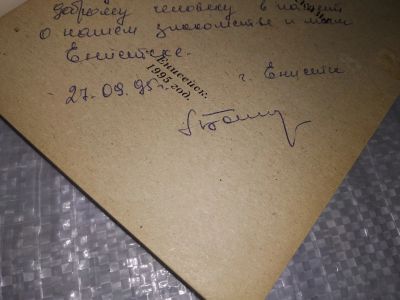 доброму человеку в память
о нашем знакомстве и милом
Енисейске.
Енисейск.
1995 год.
г. Енисей
27.09.95 г.